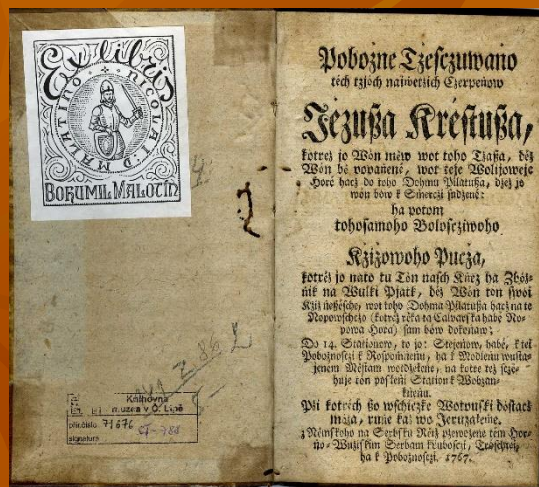 Ex libris
NICOLAI · D · MALATINO
BOHUMIL MALOTÍN
Knihovna
muzea v Č. Lípě
přír. číslo 71676
signatura ST-788
Pobožne Tżesczuwano
téch tzjoch najwetżich Czerpeńow
Jézußa Kréstußa,
kotreż jo Wón méw wot toho Tżaßa, déż
Wón bé powańené, wot teje Wolijoweje
Horé hacż do toho Dohmu Pilatußa, dżeż jo
wón bów k Smerczi sudżené:
ha potom
tohosamoho Boloscziwoho
Kżiżowoho Pucża,
kotréż jo nato tu Tón nasch Knez ha Zbóż-
nik na Wulki Pjatk, déż Wón ton swoi
Kżiż neßésche, wot toho Dohma Pilatußa hacż na to
Nopowschczo (kotreż réka ta Calvarska habé No-
powa Hora) sam bów dokonaw:
Do 14. Stationow, to jo: Stejenow, habé, k tei
Pobożnosczi k Rospomnenu, ha k Modlenu wusta-
jenem Méstam wotdżelene, na kotre téż scżé-
huje tón posleni Station k Wobzan-
kńenu.
Pżi kotréch ßo wschiczke Wotpuski dóstacż
móża, runje każ wo Jeruzalemе.
z Némskoho na Serbsku Récż pżewożene tém Hor-
no-Wużiskim Serbam k lubosczi, Tróschtei,
ha k Pobożnosczi. 1767.